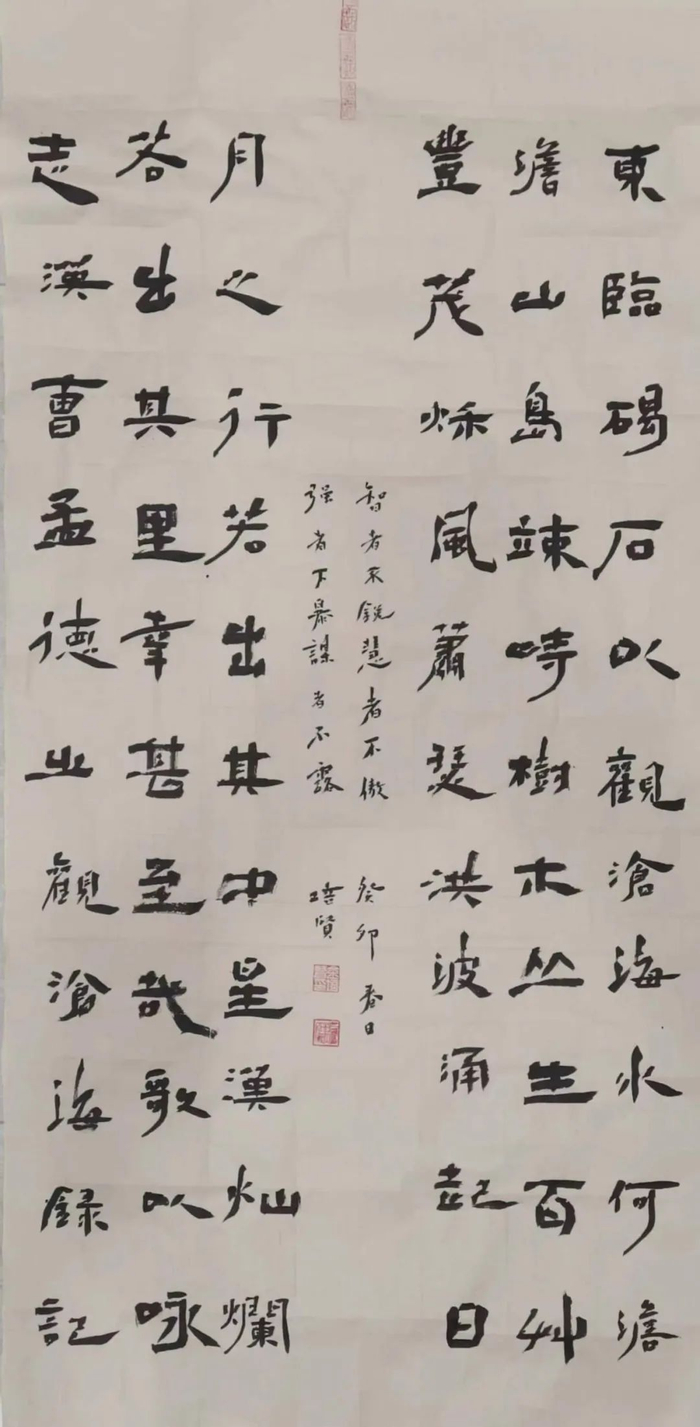 東臨碣石以觀滄海水何澹
澹山島竦峙樹木丛生百艸
豐茂秌風蕭瑟洪波涌起日
智者不銳慧者不傲 癸卯春日
强者不暴謀者不露 培賢
月之行若出其中星漢灿爛
若出其里幸甚至哉歌以咏
志漢曹孟德之觀滄海録記